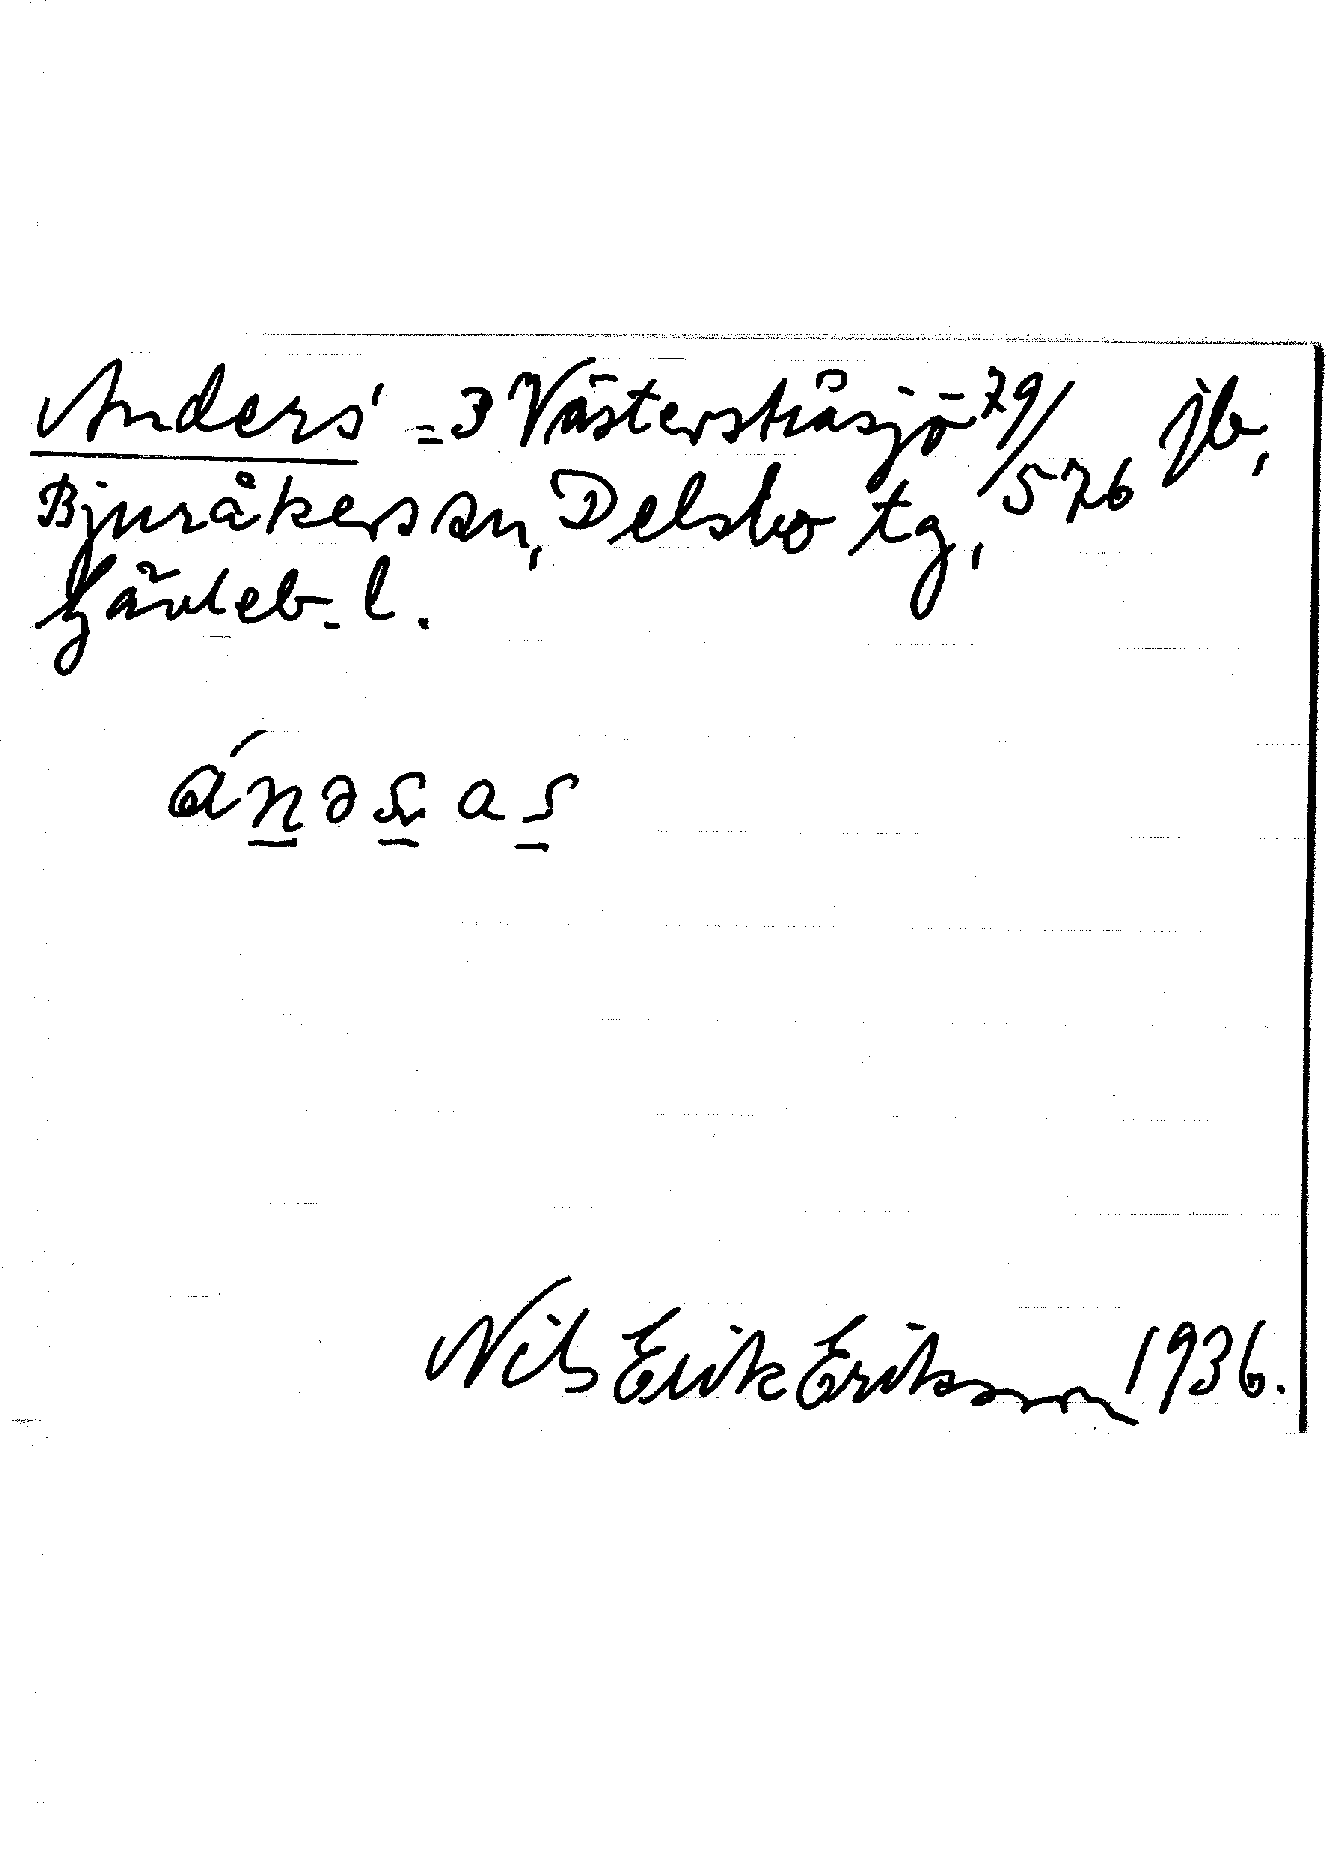 Anders' = 3 Västerstråsjö 79/576 jb,
Bjuråkers sn, Delsbo tg,
Gävleb. l.
Nils Erik Eriksson 1936.